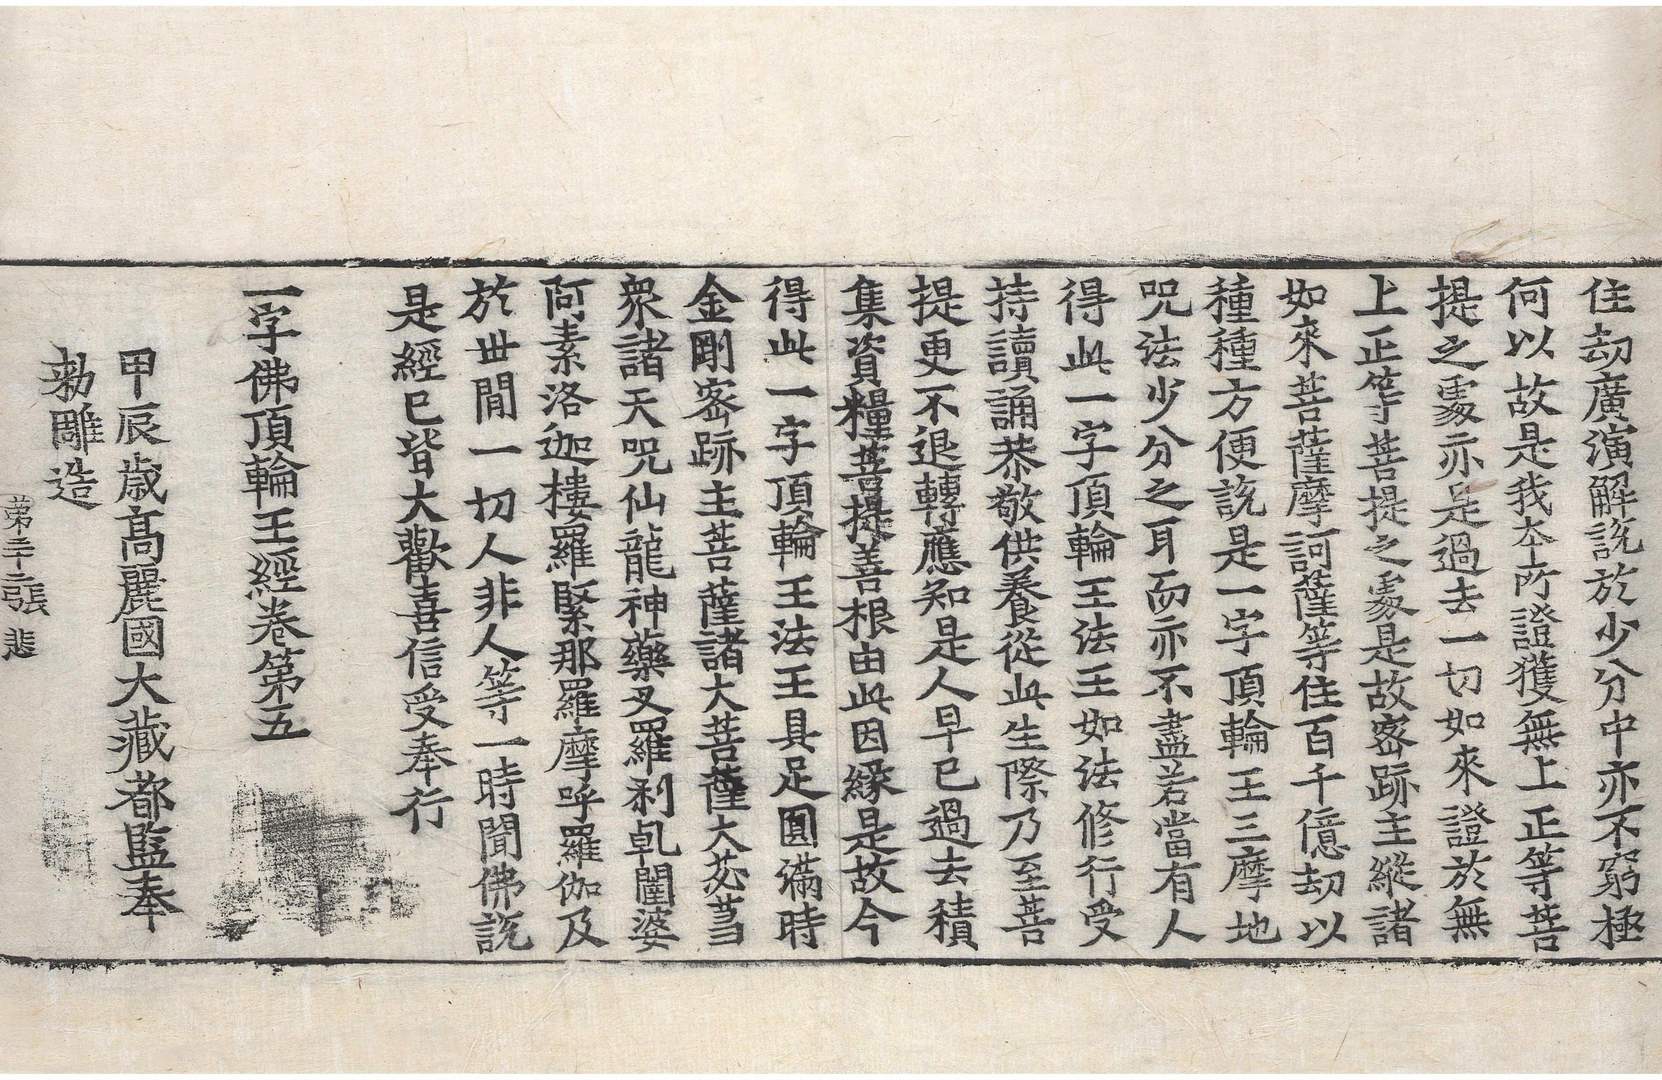 住劫廣演解說於少分中亦不窮極
何以故是我本所證獲無上正等菩
提之處亦是過去一切如來證於無
上正等菩提之處是故密跡主縱諸
如來菩薩摩訶薩等住百千億劫以
種種方便說是一字頂輪王三摩地
呪法少分之耳而亦不盡若當有人
得此一字頂輪王法王如法修行受
持讀誦恭敬供養從此生際乃至菩
提更不退轉應知是人早已過去積
集資糧菩提善根由此因緣是故今
得此一字頂輪王法王具足圓滿時
金剛密跡主菩薩諸大菩薩大苾芻
衆諸天呪仙龍神藥叉羅剎乹闥婆
阿素洛迦樓羅緊那羅摩呼羅伽及
於丗閒一切人非人等一時聞佛說
是經已皆大歡喜信受奉行
一字佛頂輪王經卷第五
甲辰歲高麗國大藏都監奉
勑雕造
第二十二張 悲